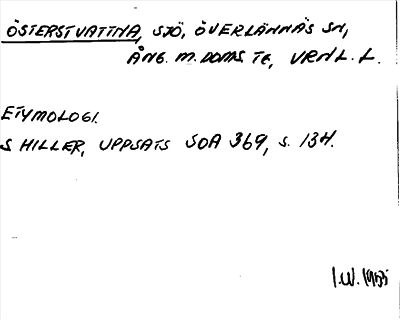 ÖSTERSTVATTNA, SJÖ, ÖVERLÄNNÄS SN,
ÅNG. M. DOMS TG, VRNL. L.
ETYMOLOGI.
S HILLER, UPPSATS SOA 369, S. 134.
I.W. 1955